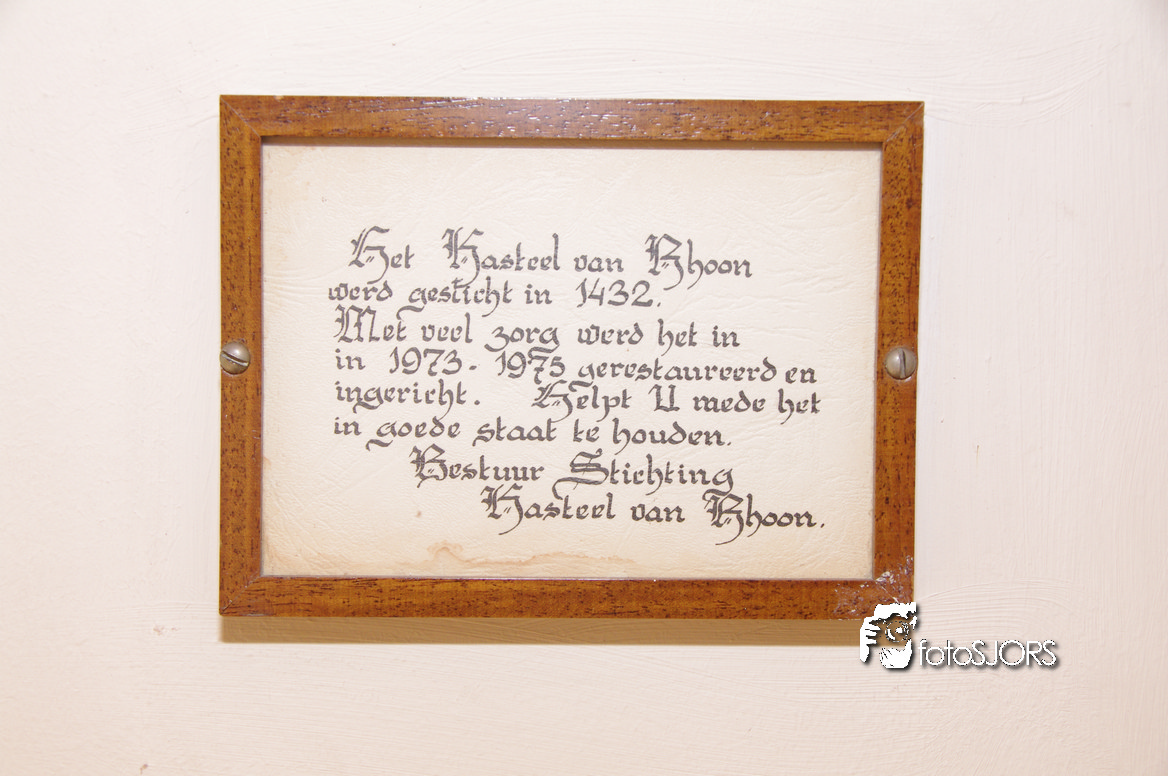 Het Kasteel van Rhoon
werd gesticht in 1432.
Met veel zorg werd het in
in 1973-1975 gerestaureerd en
ingericht. Helpt U mede het
in goede staat te houden.
Bestuur Stichting
Kasteel van Rhoon.
fotoSJORS